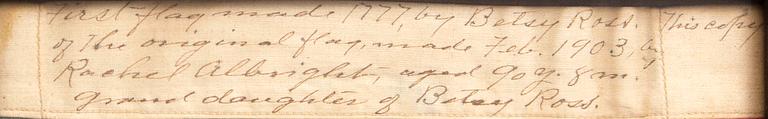 First flag made 1777, by Betsy Ross. This copy
of the original flag, made Feb. 1903, by
Rachel Albright, aged 90 y. 8 m.
grand daughter of Betsy Ross.